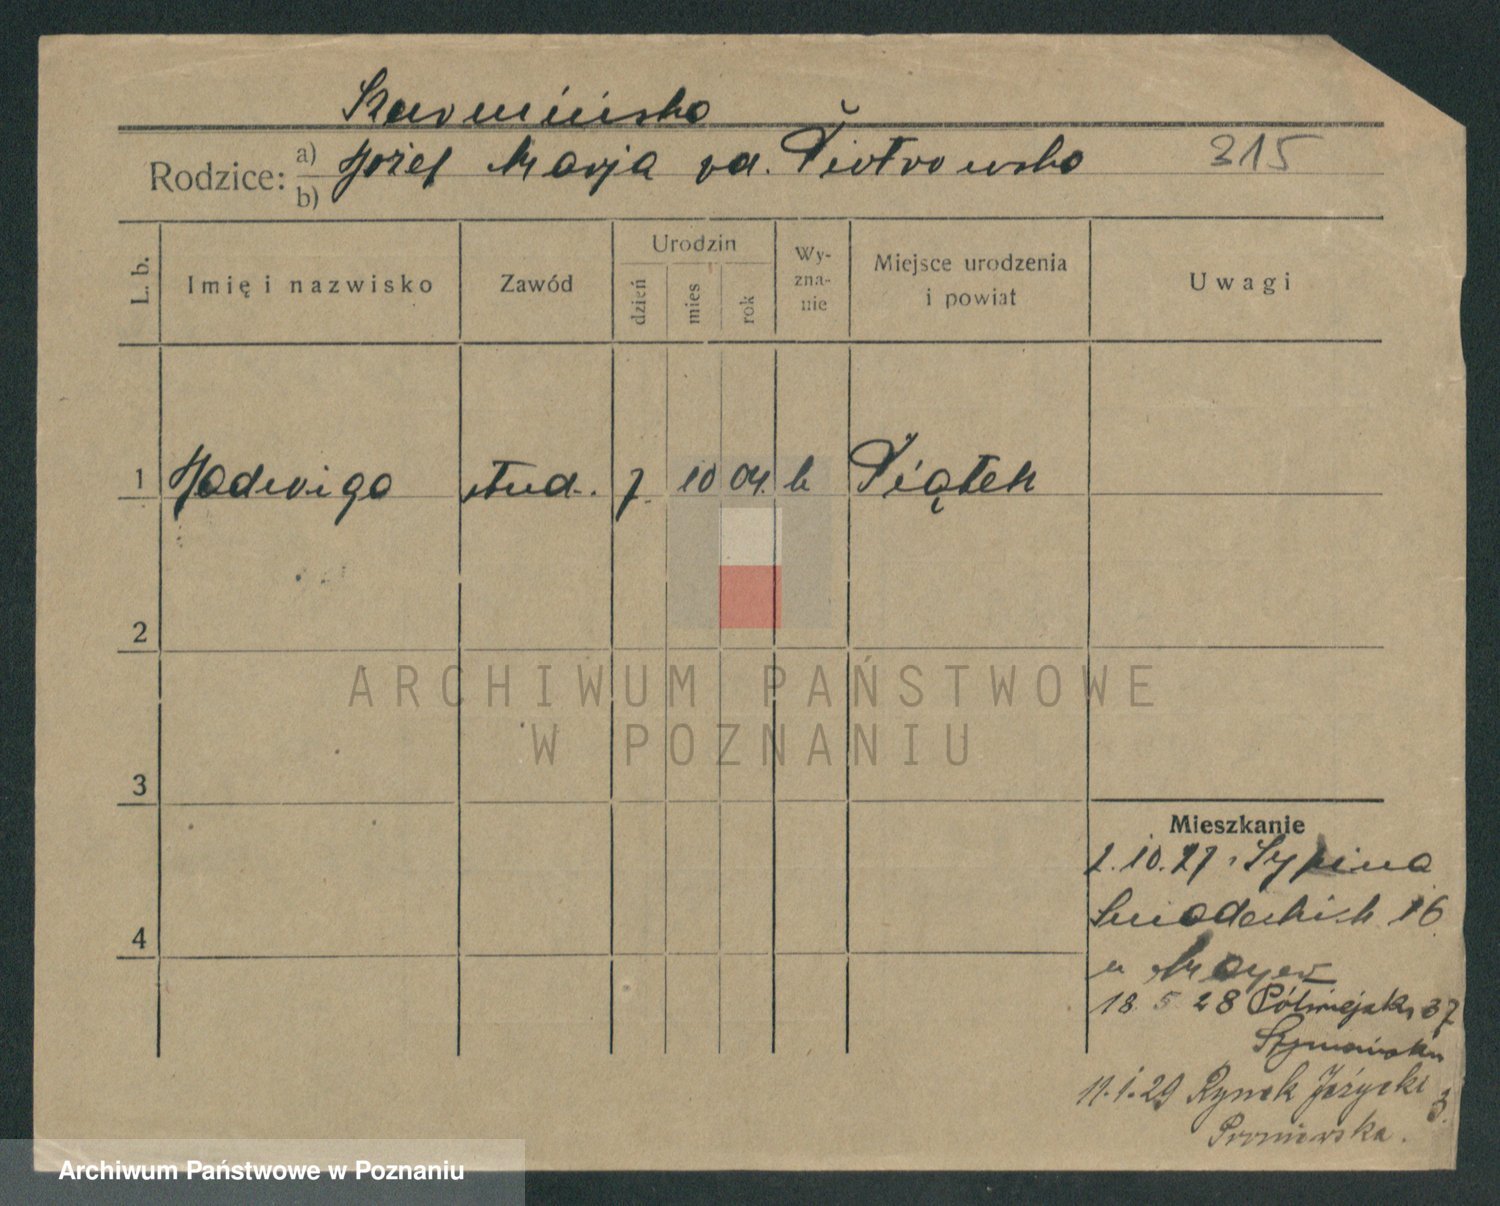 Rodzice:
a) Józef Marja zd. Piotrowska 315
b)
L. b. Imię i nazwisko Zawód Urodzin dzień mies rok Wy-zna-nie Miejsce urodzenia i powiat Uwagi
1 Jadwiga stud. 7. 10 04. k Piątek
2
3
4
Mieszkanie
1.10.27
Śniadeckich 16
u Mayer
18 5 28 Półwiejska 37
Szymańska
11.1.29 Rynek Jeżycki 3.
ARCHIWUM PAŃSTWOWE
W POZNANIU
Archiwum Państwowe w Poznaniu